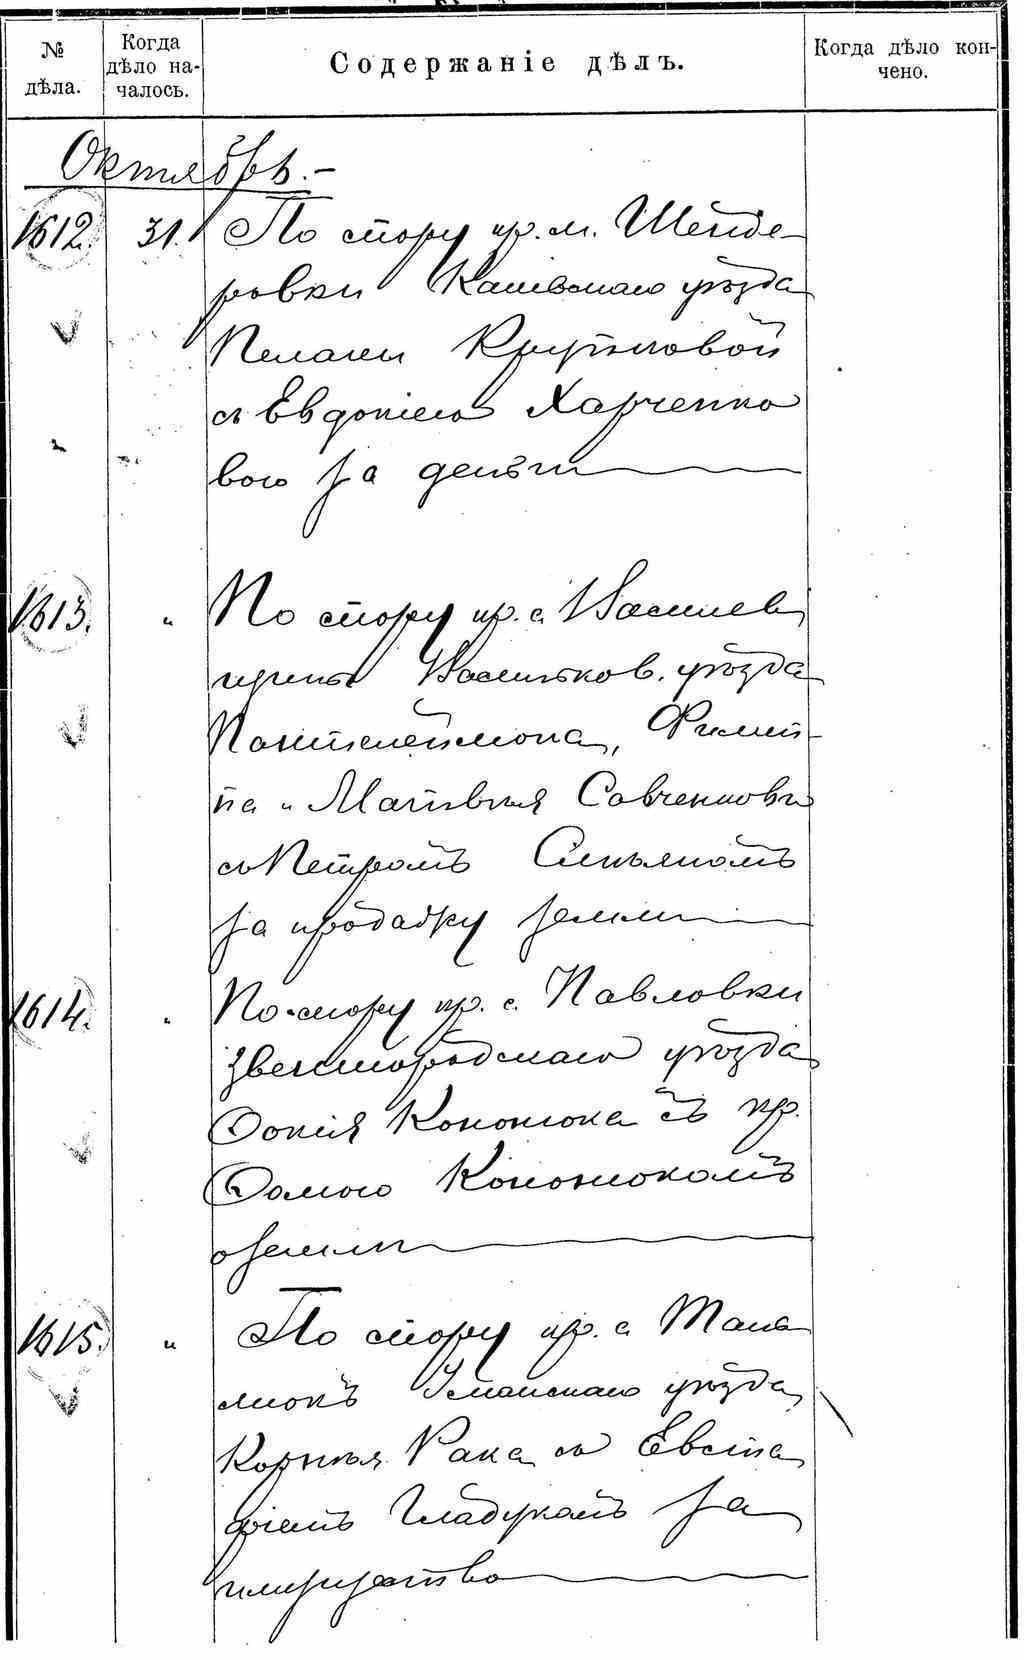 № дѣла.
Когда дѣло началось.
Содержаніе дѣлъ.
Когда дѣло кончено.
Октябрь.-
1612. 31. По спору кр. м. Шенде-
ровки Каневскаго уѣзда
Пелагеи Крупиковой
съ Евдокіею Харченко
вою за деньги
1613. " По спору кр. с. Василев
щины Васильков. уѣзда
Пантелеймона, Филип-
па и Матвѣя Савченковъ
съ Петромъ
за продажу земли
1614. " По спору кр. с. Павловки
Звенигородскаго уѣзда
Фокія Кононюка съ кр.
Фомою Кононюкомъ
о земли
1615. " По спору кр. с.
Уманскаго уѣзда
Корнѣя Рака съ Евста
фіемъ Гладукомъ за
имущество